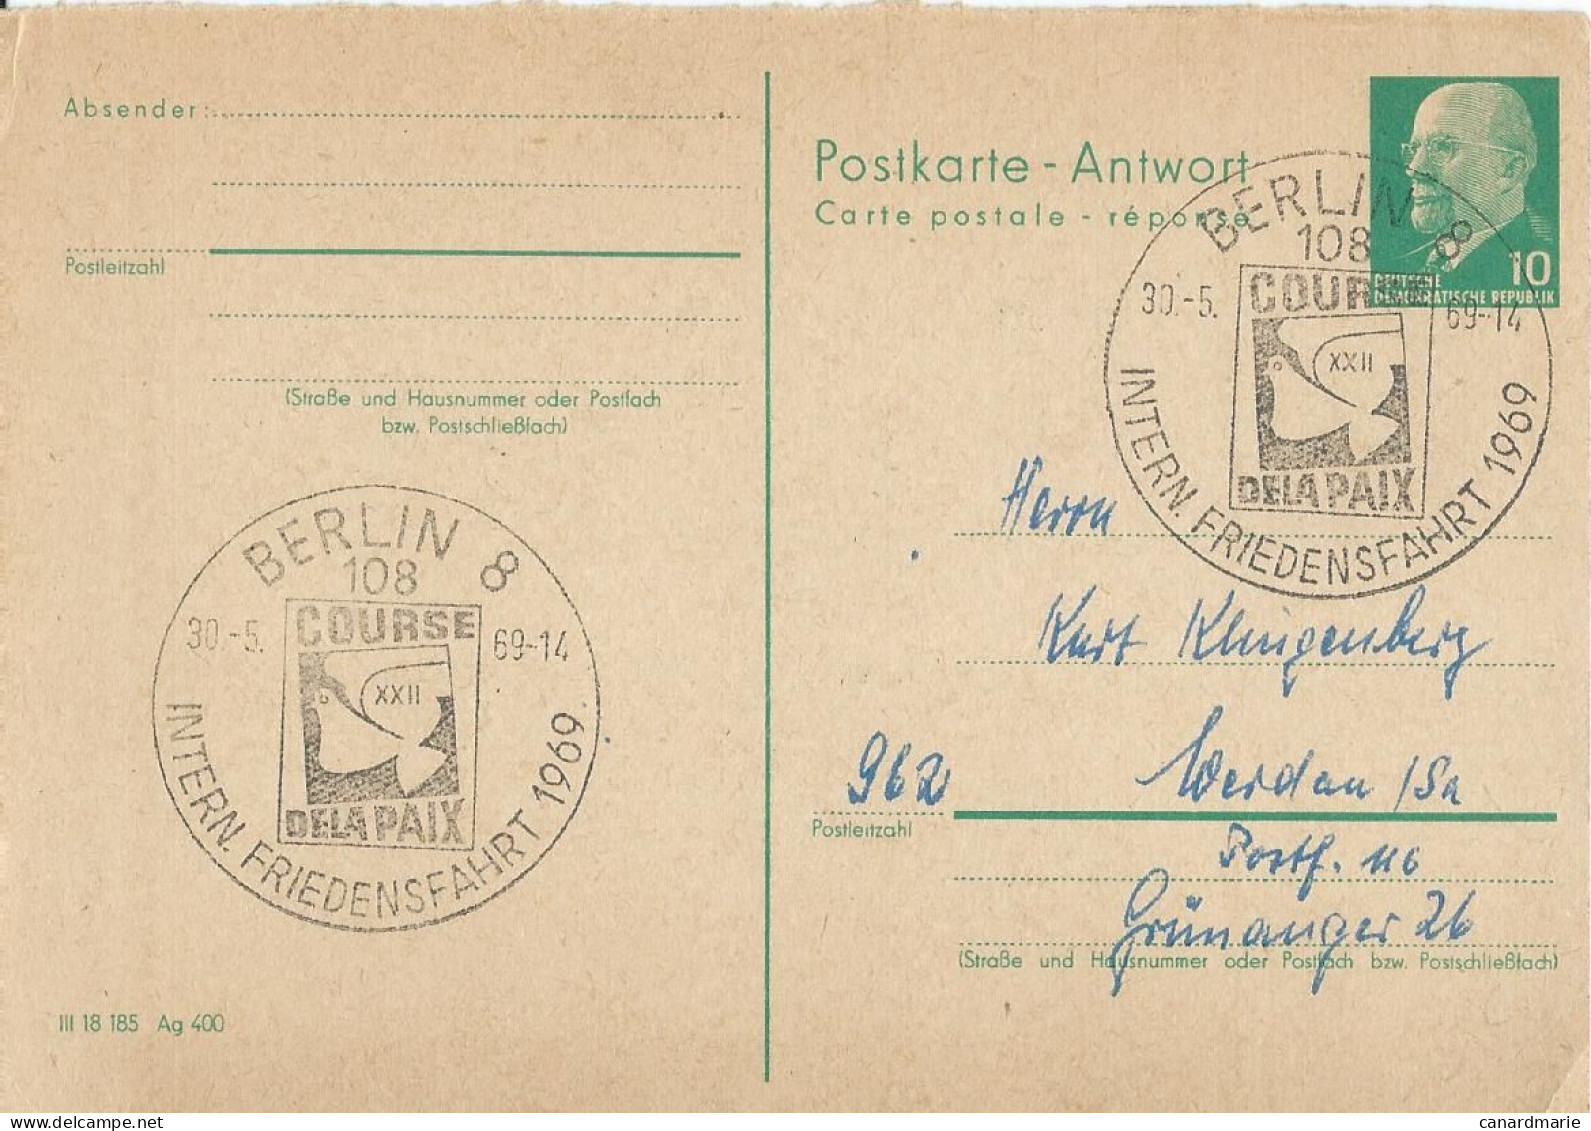 Absender:
Postleitzahl
(Straße und Hausnummer oder Postfach
bzw. Postschließfach)
BERLIN 8
108
30.-5. 69-14
COURSE
XXII
DE LA PAIX
INTERN. FRIEDENSFAHRT 1969
III 18 185 Ag 400
Postkarte - Antwort
Carte postale - réponse
10
DEUTSCHE
DEMOKRATISCHE REPUBLIK
BERLIN 8
108
30.-5. 69-14
COURSE
XXII
DE LA PAIX
INTERN. FRIEDENSFAHRT 1969
Herrn
Kurt Klingenberg
962 Werdau /Sa
Postleitzahl
Postf. 116
Grünanger 26
(Straße und Hausnummer oder Postfach bzw. Postschließfach)
canardmarie